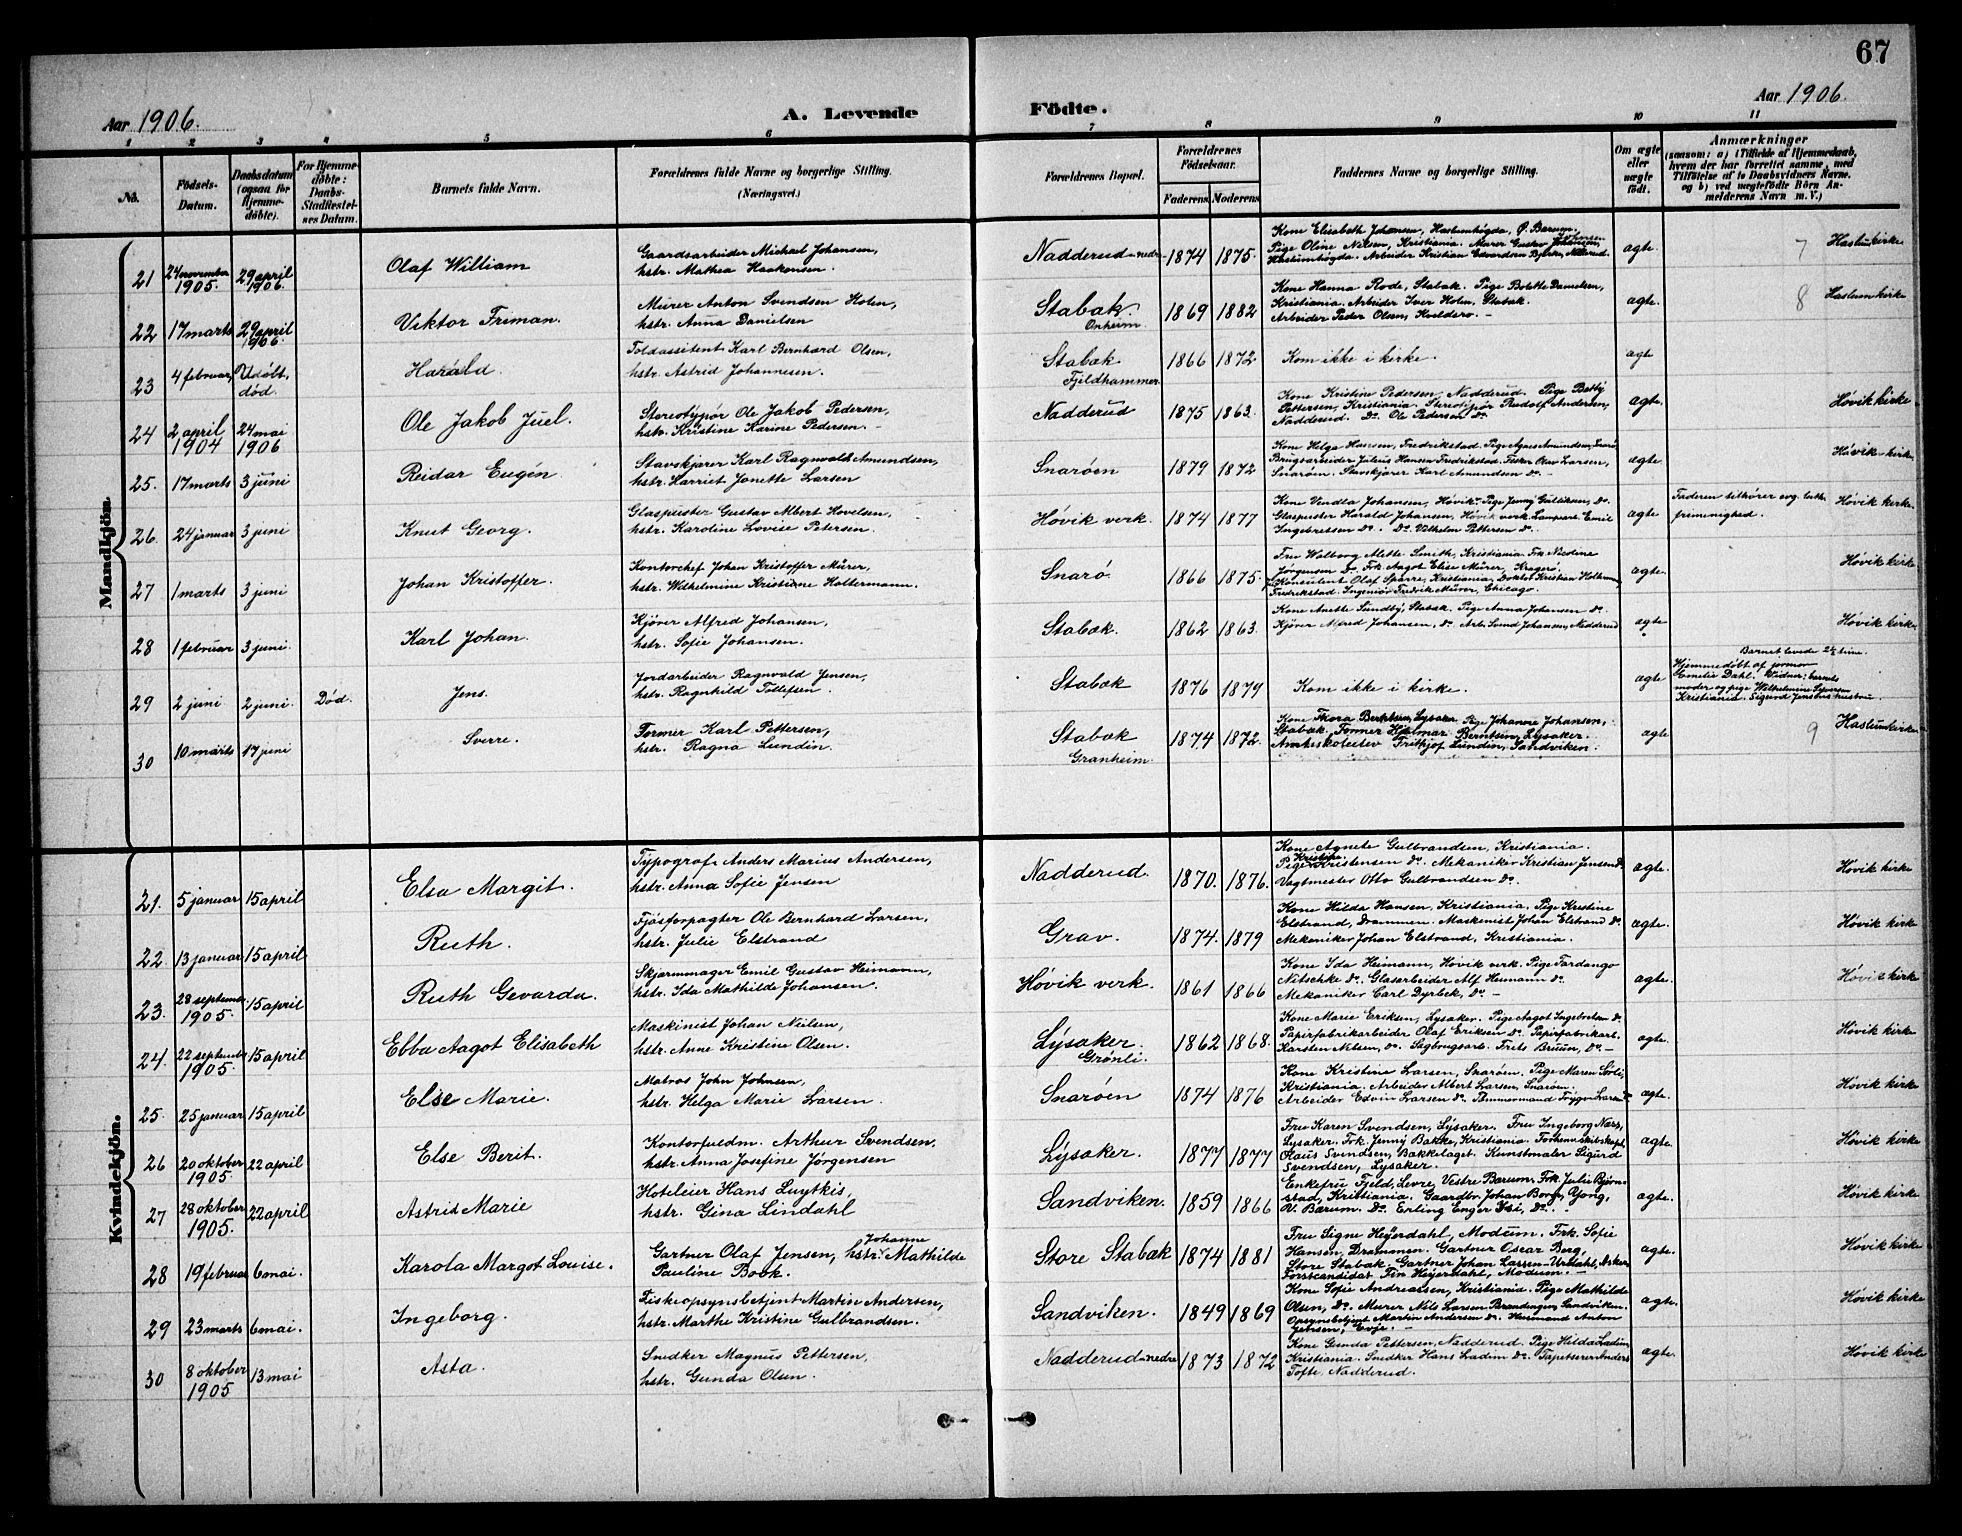 67
Aar 1906.
A. Levende Födte.
Aar 1906.
1 2 3 4 5 6 7 8 9 10 11
No.
Födsels-Datum.
Daabsdatum (ogsaa for Hjemme-döbte).
For Hjemme-döbte: Daabs-Stadfæstelses Datum.
Barnets fulde Navn.
Forældrenes fulde Navne og borgerlige Stilling. (Næringsvei.)
Forældrenes Bopæl.
Forældrenes Födselsaar.
Faderens Moderens
Faddernes Navne og borgerlige Stilling.
Om ægte eller uægte födt.
Anmærkninger
(saasom: a) i Tilfælde af Hjemmedaab,
hvem der har forrettet samme, med
Tilföielse af to Daabsvidners Navne,
og b) ved uægtefödte Börn An-
melderens Navn m. V.)
Mandkjön.
21 24 november 1905. 29 april 1906. Olaf William
Gaardsarbeider Michael Johansen,
hstr. Mathea Haakensen.
Nadderud nedre 1874 1875.
Kone Elisabeth Johansen, Haslumhøgda, Ø. Bærum.
Pige Oline Nilsen, Kristiania. Murer Gustav Johansen,
Haslumhøgda. Arbeider Kristian Edvardsen Bjerke, Nadderud.
ægte. 7 Haslum kirke
22 17 marts 29 april 1906. Viktor Friman.
Murer Anton Svendsen Holen,
hstr. Anna Danielsen
Stabæk. Onheim 1869 1882
Kone Hanna Rode, Stabæk. Pige Bolette Danielsen,
Kristiania. Arbeider Iver Holen, Stabæk.
Arbeider Peder Olsen, Hveldero. –
ægte. 8 Haslum kirke
23 4 februar, Udøbt, død. Harald
Toldassistent Karl Bernhard Olsen,
hstr. Astrid Johannesen.
Stabæk Fjeldhammer 1866 1872
Kom ikke i kirke.
ægte
24 2 april 1904 24 mai 1906 Ole Jakob Juel.
Stereotypør Ole Jakob Pedersen,
hstr. Kristine Karine Pedersen. –
Nadderud 1875 1863.
Kone Kristine Pedersen, Nadderud. Pige Betty
Pettersen, Kristiania. Stereotypør Rudolf Andersen,
Nadderud. Do. Ole Pedersen do.
ægte. Høvik kirke
25. 17 marts 3 juni Reidar Eugén
Stavskjærer Karl Ragnvald Amundsen,
hstr. Harriet Janette Larsen
Snarøen 1879 1872
Kone Helga Hansen, Fredrikstad. Pige Agnes Amundsen, Snarø
Brugsarbeider Julius Hansen Fredrikstad. Fisker Olav Larsen,
Snarøen. Stavskjærer Karl Amundsen do.
ægte Høvik kirke.
26. 24 januar 3 juni Knut Georg.
Glaspuster Gustav Albert Hovelsen,
hstr. Karoline Lovise Petersen.
Høvik verk. 1874 1877
Kone Vendla Johansen, Høvik. Pige Jenny Gulliksen, do.
Glaspuster Harald Johansen, Høvik verk. Emil
Ingebretsen do. Do. Vilhelm Pettersen do.
ægte Faderen tilhører evg. luth.
frimenighed. Høvik kirke.
27 1 marts 3 juni Johan Kristoffer.
Kontorchef Johan Kristoffer Mürer,
hstr. Wilhelmine Kristiane Holtermann.
Snarø 1866 1875.
Fru Walborg Alette Smith, Kristiania. Frk Nicoline
Jørgensen Do. Frk. Aagot Elise Mürer, Kragerø.
Konsulent Olaf Sparre, Kristiania. Doktor Kristian Holterman
Fredrikstad. Ingeniør Fredrik Mürer, Chicago.
ægte. Høvik kirke
28 1 februar 3 juni. Karl Johan.
Kjører Alfred Johansen,
hstr. Sofie Johansen.
Stabæk. 1862 1863.
Kone Anette Sundby, Stabæk. Pige Anna Johansen do.
Kjører Alfred Johansen, do. Arb. Johansen, Nadderud
ægte Høvik kirke
29 2 juni 2 juni Død. Jens.
Jordarbeider Ragnvald Jensen,
hstr. Ragnhild Tollefsen.
Stabæk 1876 1879
Kom ikke i kirke.
ægte Barnet levede 2½ time.
Hjemmedøbt af jormor
Emelie Dahl. Vidner: barnets
moder og pige Wilhelmine
Kristiania. Sigurd Jensens hustru.
30 10 marts 17 juni Sverre.
Former Karl Pettersen,
hstr. Ragna Lundin.
Stabæk Granheim. 1874 1872.
Kone Thora Berntsen, Lysaker. Pige Johanne Johansen,
Stabæk. Former Hjalmar Berntsen, Lysaker.
Amtsskoleelev Frithjof Lundin, Sandviken.
ægte 9 Haslum kirke
Kvindekjön.
21. 5 januar 15 april Elsa Margit.
Typograf Anders Marius Andersen,
hstr. Anna Sofie Jensen
Nadderud. 1870. 1876.
Kone Agnete Gulbrandsen, Kristiania.
Pige Kristine Kristensen do. Mekaniker Kristian Jensen do.
Vagtmester Otto Gulbrandsen do.
ægte. Høvik kirke
22 13 januar 15 april Ruth.
Fjøsforpagter Ole Bernhard Larsen,
hstr. Julie Elstrand
Grav. 1874. 1879
Kone Hilda Hansen, Kristiania. Pige Kristine
Elstrand, Drammen. Maskenist Johan Elstrand do.
Mekaniker Johan Elstrand, Kristiania.
ægte. Høvik kirke
23. 28 september 1905. 15 april Ruth Gevarda.
Skjærmmager Emil Gustav Heimann,
hstr. Ida Mathilde Johansen.
Høvik verk. 1861 1866
Kone Ida Heimann, Høvik verk. Pige Fardango
Nitschke do. Glasarbeider Alf Heimann do.
Mekaniker Carl Dyrbek, do. –
ægte. Høvik kirke
24. 22 september 1905. 15 april Ebba Aagot Elisabeth
Maskinist Johan Nielsen,
hstr. Anne Kristine Olsen.
Lysaker. Grønli. 1862 1868.
Kone Marie Eriksen, Lysaker. Pige Aagot Ingebretsen do.
Papirfabrikarbeider Olaf Eriksen do. Papirfabrikarb.
Karsten Nilsen, do. Sagbrugsarb. Frets Bruun, do. –
ægte. Høvik kirke
25. 25 januar 15 april Else Marie.
Matros John Johnsen,
hstr. Helga Marie Larsen.
Snarøen 1874 1876
Kone Kristine Larsen, Snarøen. Pige Maren Sørli,
Kristiania. Arbeider Albert Larsen, Snarøen.
Arbeider Edvin Larsen do. Tømmermand Trygve Larsen do.
ægte. Høvik kirke
26 20 oktober 1905. 22 april Else Berit.
Kontorfuldm. Arthur Svendsen,
hstr. Anna Josefine Jørgensen
Lysaker. 1877 1877
Fru Karen Svendsen, Lysaker. Fru Ingeborg Næss,
Lysaker. Frk. Jenny Bakke, Kristiania. Forhenv. skibskapt.
Olaus Svendsen, Bakkelaget. Kunstmaler Sigurd
Svendsen, Lysaker.
ægte. Høvik kirke
27 28 oktober 1905. 22 april Astrid Marie
Hoteleier Hans Luytkis,
hstr. Gina Lindahl
Sandviken. 1859 1866
Enkefru Fjeld, Levre, Vestre Bærum. Frk. Julie Bjørn-
stad, Kristiania. Gaardbr. Johan Borg, Yong,
V. Bærum. Do. Erling Enger Ysi, do. –
ægte. Høvik kirke
28 19 februar 6 mai. Karola Margot Louise.
Gartner Olaf Jensen, hstr. Johanne Mathilde
Pauline Book.
Store Stabæk 1874 1881
Fru Signe Heyerdahl, Modum. Frk. Sofie
Hansen, Drammen. Gartner Oscar Berg,
Store Stabæk. Gartner Johan Larssen Urdahl, Asker.
Forstcandidat Fin Heyerdahl, Modum. –
ægte. Høvik kirke
29 23 marts 6 mai. Ingeborg.
Fiskeopsynsbetjent Martin Andersen,
hstr. Marthe Kristine Gulbrandsen.
Sandviken. 1849 1869
Kone Sofie Andreassen, Kristiania. Pige Mathilde
Olsen, do. Murer Nils Larsen Brændengen, Sandviken.
Opsynsbetjent Martin Andersen do. Husmand Anton
Jensen, Evje. –
ægte. Høvik kirke
30 8 oktober 1905 13 mai Asta.
Snedker Magnus Pettersen,
hstr. Gunda Olsen.
Nadderud nedre 1873 1872
Kone Gunda Pettersen, Nadderud. Pige Hilda Ladim,
Kristiania. Snedker Hans Ladim do. Tapetserer Anders
Tofte, Nadderud.
ægte. Høvik kirke